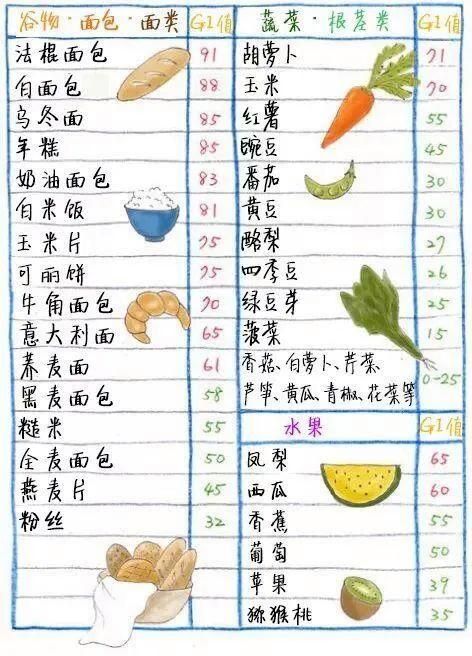 谷物·面包·面类 GI值
法棍面包 91
白面包 88
乌冬面 85
年糕 85
奶油面包 83
白米饭 81
玉米片 75
可丽饼 75
牛角面包 70
意大利面 65
荞麦面 61
黑麦面包 58
糙米 55
全麦面包 50
燕麦片 45
粉丝 32
蔬菜·根茎类 GI值
胡萝卜 71
玉米 70
红薯 55
豌豆 45
番茄 30
黄豆 30
酪梨 27
四季豆 26
绿豆芽 25
菠菜 15
香菇、白萝卜、芹菜、
芦笋、黄瓜、青椒、花菜等 0-25
水果 GI值
凤梨 65
西瓜 60
香蕉 55
葡萄 50
苹果 39
猕猴桃 35